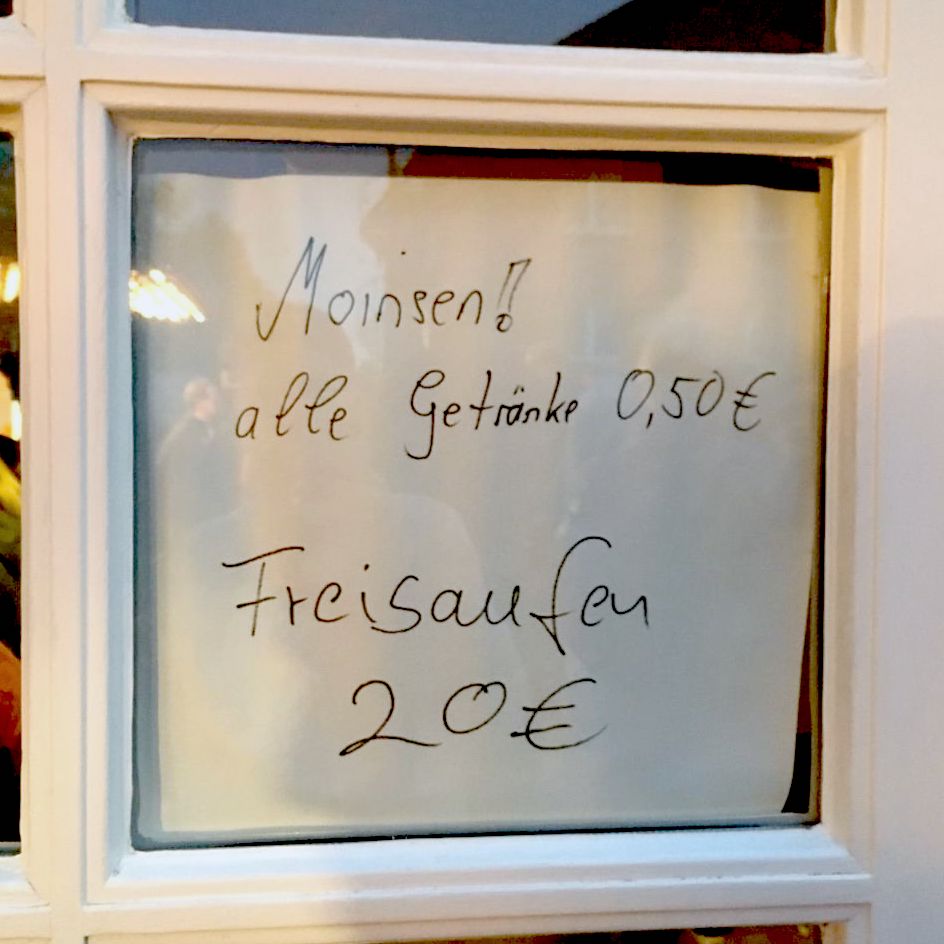 Moinsen!!
alle Getränke 0,50€
Freisaufen
20€